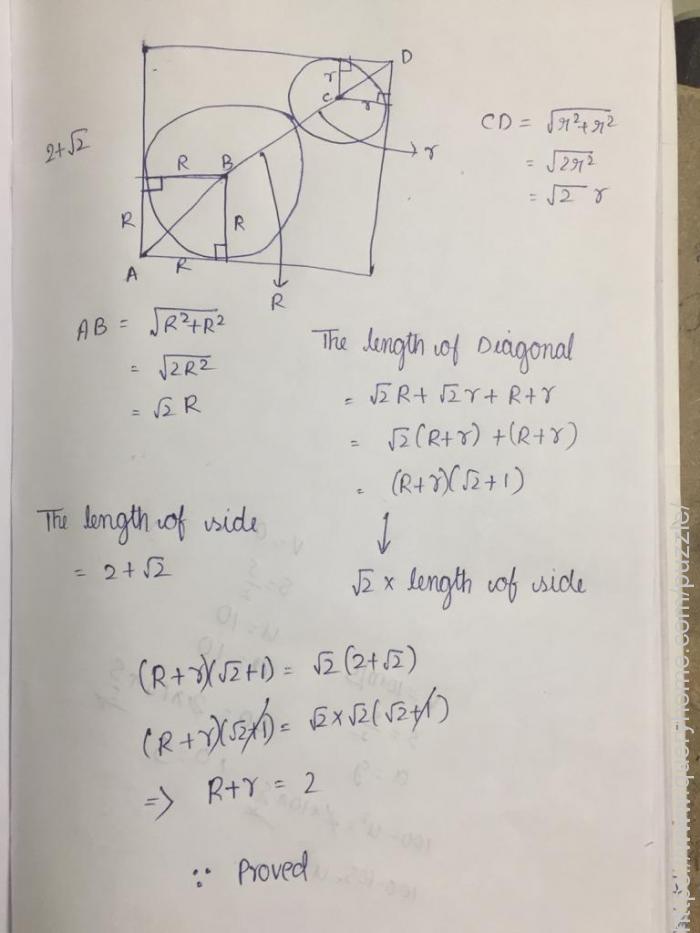 D
r
C
r
CD = √r²+r²
2+√2
= √2r²
R B
r
= √2 r
R
R
A
R
R
AB = √R²+R²
= √2R²
= √2 R
The length of Diagonal
= √2R + √2r + R+r
= √2(R+r) +(R+r)
= (R+r)(√2+1)
The length of side
= 2+√2
↓
√2 × length of side
(R+r)(√2+1) = √2(2+√2)
(R+r)(√2+1) = √2×√2(√2+1)
=> R+r = 2
∵ Proved
www.queryhome.com/puzzle/